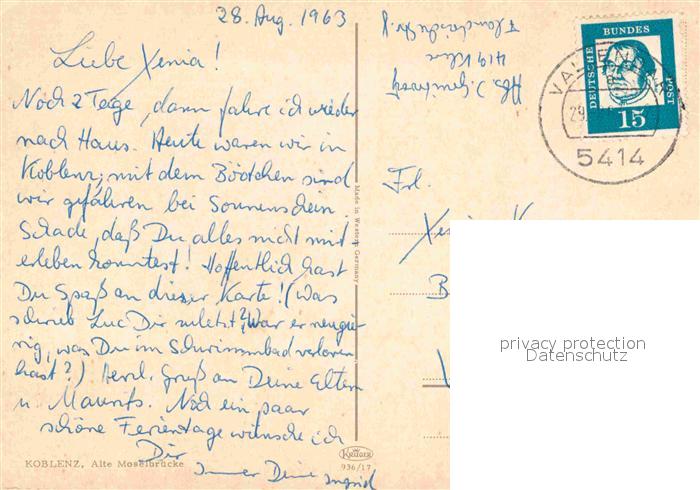 28. Aug. 1963
Liebe Xenia!
Noch 2 Tage, dann fahre ich wieder
nach Haus. Heute waren wir in
Koblenz, mit dem Bötchen sind
wir gefahren bei Sonnenschein.
Schade, daß Du alles nicht mit
erleben konntest! Hoffentlich hast
Du Spaß an dieser Karte! (Was
schrieb Luc Dir zuletzt? War er neugie-
rig, was Du im Schwimmbad verloren
hast?) Herzl. Gruß an Deine Eltern
u Maurits. Noch ein paar
schöne Ferientage wünsche ich
Dir
Immer Deine Ingrid
KOBLENZ, Alte Moselbrücke
Made in Western Germany
Krüger
936/17
Abs. I.
419 Kleve
DEUTSCHE BUNDES POST
15
29.
5414
Frl.
Xenia K
B
privacy protection
Datenschutz